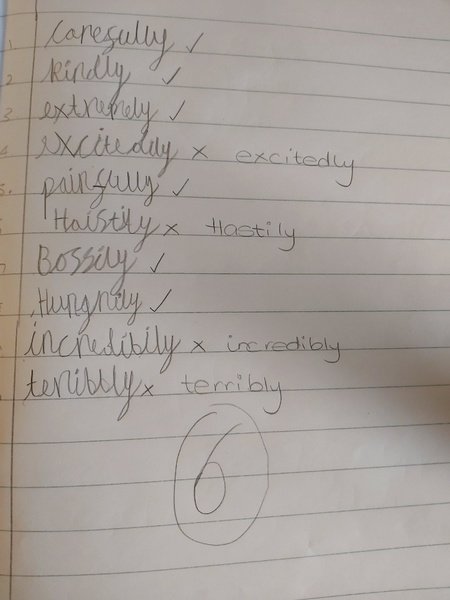 1 Carefully ✓
2 kindly ✓
3 extremely ✓
4 excitedily × excitedly
5. painfully ✓
Haistily × Hastily
7 Bossily ✓
8 Hungrily ✓
incredibily × incredibly
terribbly × terribly
6